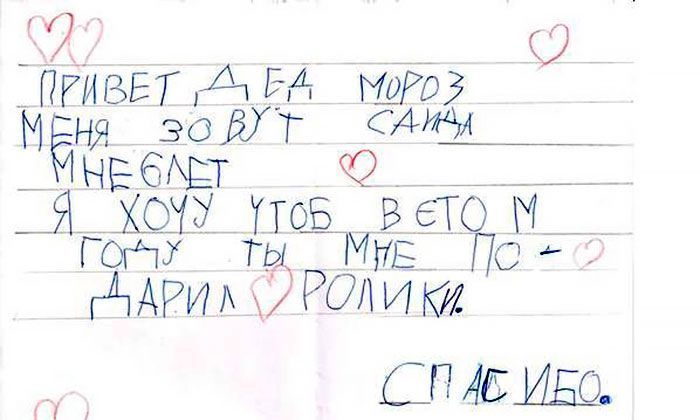 ПРИВЕТ ДЕД МОРОЗ
МЕНЯ ЗОВУТ САИДА
МНЕ 6 ЛЕТ
Я ХОЧУ ЧТОБ В ЕТОМ
ГОДУ ТЫ МНЕ ПО-
ДАРИЛ РОЛИКИ.
СПАСИБО.